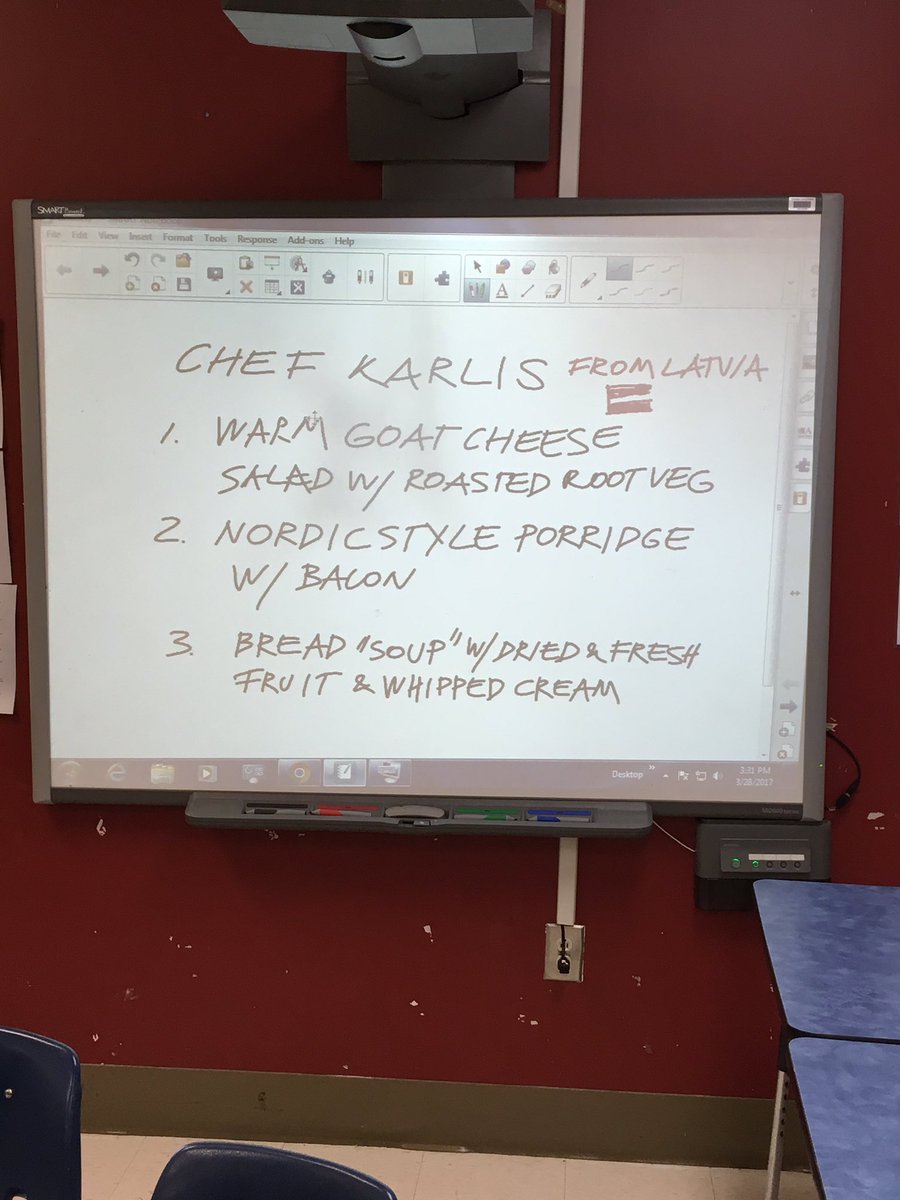 SMART Board
File Edit View Insert Format Tools Response Add-ons Help
CHEF KARLIS FROM LATVIA
1. WARM GOAT CHEESE
SALAD W/ ROASTED ROOT VEG
2. NORDIC STYLE PORRIDGE
W/ BACON
3. BREAD "SOUP" W/ DRIED & FRESH
FRUIT & WHIPPED CREAM
Desktop
3:31 PM
3/28/2017